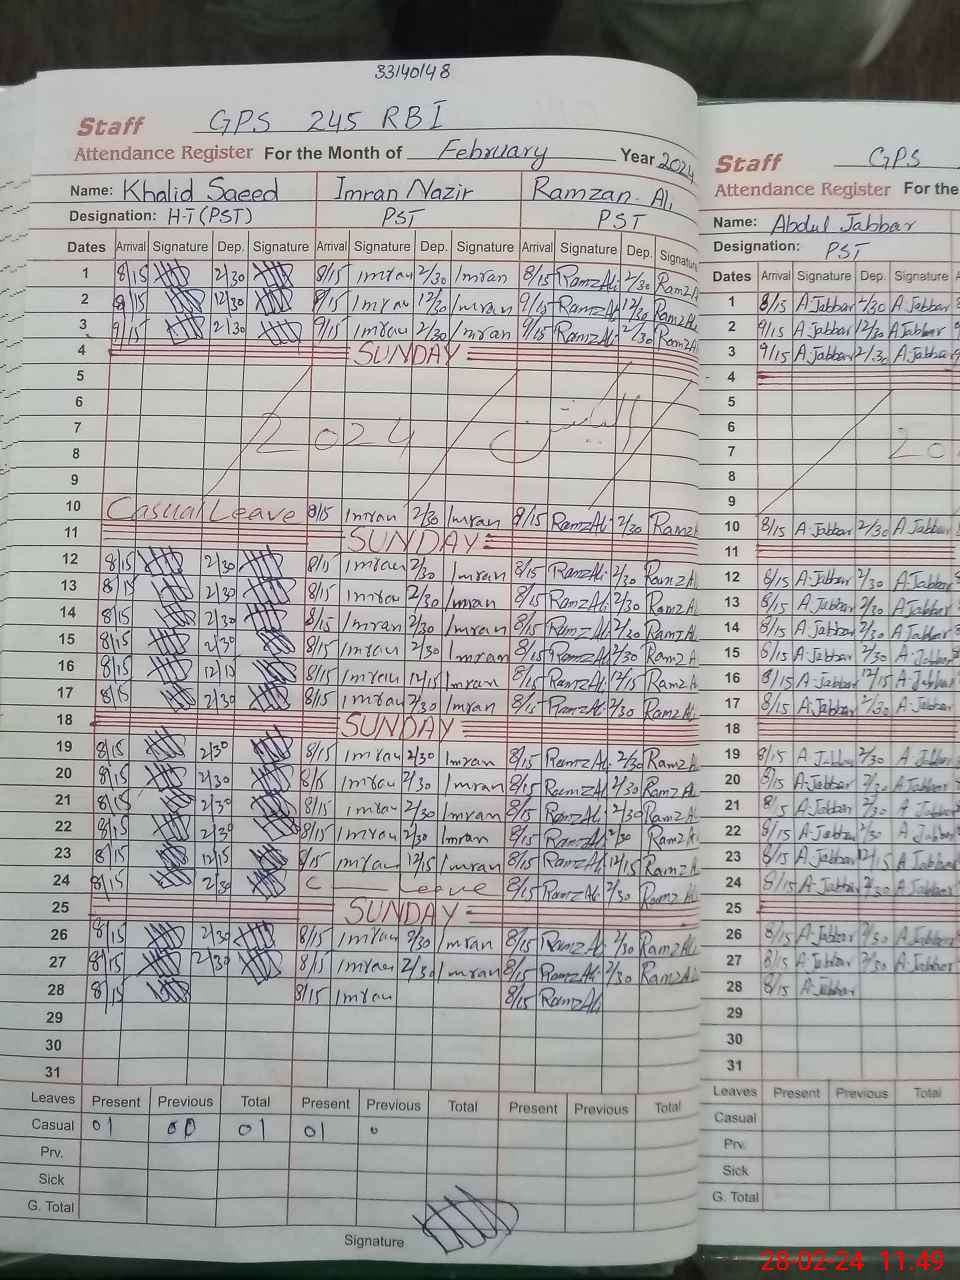 33140148
Staff GPS 245 RBI
Attendance Register For the Month of February Year 2024
Name: Khalid Saeed Imran Nazir Ramzan Ali
Designation: H-T (PST) PST PST
Dates Arrival Signature Dep. Signature Arrival Signature Dep. Signature Arrival Signature Dep. Signature
1 8/15 2/30 8/15 Imran 2/30 Imran 8/15 RamzAli 2/30 RamzA
2 8/15 12/30 Imran 12/30 Imran 9/15 RamzAli 12/30 RamzAli
3 9/15 2/30 9/15 Imran 2/30 Imran 9/15 RamzAli 2/30 RamzA
4 SUNDAY
5
6
7 2024 الیکشن
8
9
10 Casual Leave 8/15 Imran 2/30 Imran 8/15 RamzAli 2/30 Ramz
11 SUNDAY
12 8/15 2/30 8/15 Imran 2/30 Imran 8/15 RamzAli 2/30 RamzA
13 8/15 2/30 8/15 Imran 2/30 Imran 8/15 RamzAli 2/30 RamzAli
14 8/15 2/30 8/15 Imran 2/30 Imran 8/15 RamzAli 2/30 RamzAl
15 8/15 2/30 8/15 Imran 2/30 Imran 8/15 RamzAli 2/30 RamzA
16 8/15 8/15 Imran 12/15 Imran 8/15 RamzAli 12/15 RamzA
17 8/15 2/30 8/15 Imran 2/30 Imran 8/15 RamzAli 2/30 RamzAli
18 SUNDAY
19 8/15 2/30 8/15 Imran 2/30 Imran 8/15 RamzAli 2/30 RamzA
20 8/15 2/30 8/15 Imran 2/30 Imran 8/15 RamzAli 2/30 RamzAl
21 8/15 2/30 8/15 Imran 2/30 Imran 8/15 RamzAli 2/30 RamzAl
22 8/15 2/30 8/15 Imran 2/30 Imran 8/15 RamzAli 2/30 RamzA
23 8/15 12/15 8/15 Imran 12/15 Imran 8/15 RamzAli 12/15 RamzA
24 8/15 2/30 C Leave 8/15 RamzAli 2/30 RamzAl
25 SUNDAY
26 8/15 2/30 8/15 Imran 2/30 Imran 8/15 RamzAli 2/30 RamzAli
27 8/15 2/30 8/15 Imran 2/30 Imran 8/15 RamzAli 2/30 RamzAli
28 8/15 8/15 Imran 8/15 RamzAli
29
30
31
Leaves Present Previous Total Present Previous Total Present Previous Total
Casual 01 00 01 01 0
Prv.
Sick
G. Total
Signature
Staff GPS
Attendance Register For the
Name: Abdul Jabbar
Designation: PST
Dates Arrival Signature Dep. Signature
1 8/15 A.Jabbar 2/30 A.Jabbar
2 9/15 A.Jabbar 12/30 A.Jabbar
3 9/15 A.Jabbar 2/30 A.Jabbar
4
5
6
7 20
8
9
10 8/15 A.Jabbar 2/30 A.Jabbar
11
12 8/15 A.Jabbar 2/30 A.Jabbar
13 8/15 A.Jabbar 2/30 A.Jabbar
14 8/15 A.Jabbar 2/30 A.Jabbar
15 8/15 A.Jabbar 2/30 A.Jabbar
16 8/15 A.Jabbar 12/15 A.Jabbar
17 8/15 A.Jabbar 2/30 A.Jabbar
18
19 8/15 A.Jabbar 2/30 A.Jabbar
20 8/15 A.Jabbar 2/30 A.Jabbar
21 8/15 A.Jabbar 2/30 A.Jabbar
22 8/15 A.Jabbar 2/30 A.Jabbar
23 8/15 A.Jabbar 12/15 A.Jabbar
24 8/15 A.Jabbar 2/30 A.Jabbar
25
26 8/15 A.Jabbar 2/30 A.Jabbar
27 8/15 A.Jabbar 2/30 A.Jabbar
28 8/15 A.Jabbar
29
30
31
Leaves Present Previous Total
Casual
Prv.
Sick
G. Total
28-02-24 11.49